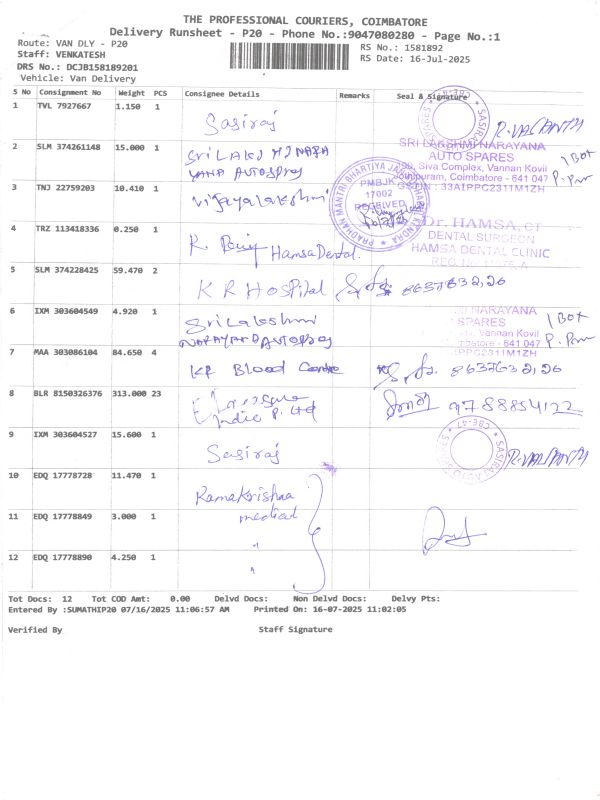 THE PROFESSIONAL COURIERS, COIMBATORE
Delivery Runsheet - P20 - Phone No.:9047080280 - Page No.:1
Route: VAN DLY - P20
RS No.: 1581892
Staff: VENKATESH
RS Date: 16-Jul-2025
DRS No.: DCJB158189201
Vehicle: Van Delivery
S No Consignment No Weight PCS Consignee Details Remarks Seal & Signature
1 TVL 7927667 1.150 1 Sasiraj
R. VASANTH
2 SLM 374261148 15.000 1 Sri LAKSHMI NARA
YANA AUTOSPARES
SRI LAKSHMI NARAYANA
AUTO SPARES
Siva Complex, Vannan Kovil
Coimbatore - 641 047
GSTIN : 33AIPPC2311M1ZH
1 BOX
3 TNJ 22759203 10.410 1 Vijayalakshmi
PRADHAN MANTRI BHARTIYA JANAUSHADHI KENDRA
PMBJK
17002
RECEIVED
4 TRZ 113418336 0.250 1 R.
Hamsa Dental.
Dr. HAMSA,
DENTAL SURGEON
HAMSA DENTAL CLINIC
5 SLM 374228425 59.470 2 K R Hospital
6 IXM 303604549 4.920 1 Sri Lakshmi
NARAYANA AUTOSPARES
NARAYANA
SPARES
Vannan Kovil
641 047
IPPC2311M1ZH
1 BOX
7 MAA 303086104 84.650 4 KR Blood Centre
8637632,26
8 BLR 8150326376 313.000 23
India P. Ltd
9788854122
9 IXM 303604527 15.600 1 Sasiraj
R. VASANTH
10 EDQ 17778728 11.470 1 Ramakrishna
medical
11 EDQ 17778849 3.000 1 "
12 EDQ 17778890 4.250 1 "
Tot Docs: 12 Tot COD Amt: 0.00 Delvd Docs: Non Delvd Docs: Delvy Pts:
Entered By :SUMATHIP20 07/16/2025 11:06:57 AM Printed On: 16-07-2025 11:02:05
Verified By Staff Signature